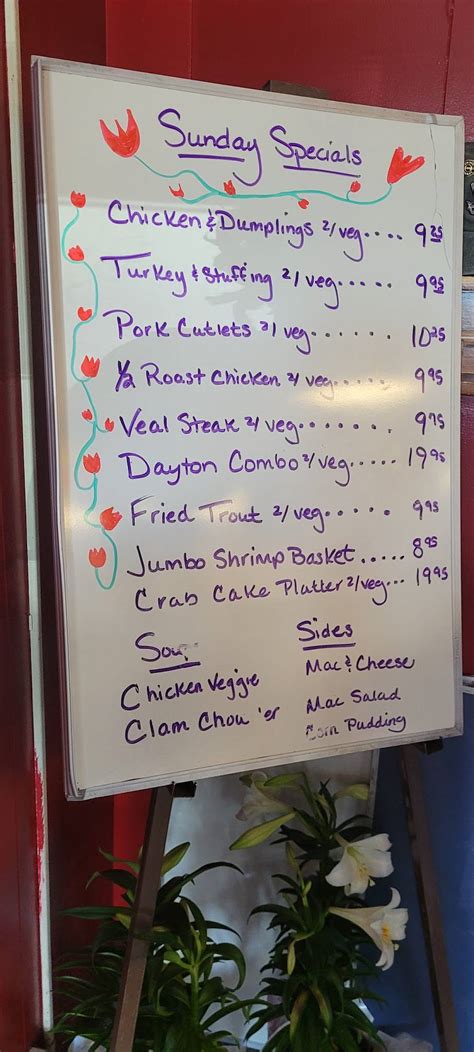 Sunday Specials
Chicken & Dumplings 2/veg.... 9.25
Turkey & Stuffing 2/veg..... 9.95
Pork Cutlets 2/veg...... 10.25
1/2 Roast Chicken 2/veg..... 9.95
Veal Steak 2/veg....... 9.75
Dayton Combo 2/veg..... 19.95
Fried Trout 2/veg..... 9.95
Jumbo Shrimp Basket..... 8.95
Crab Cake Platter 2/veg... 19.95
Chicken Veggie
Clam
Sides
Mac & Cheese
Mac Salad
Corn Pudding